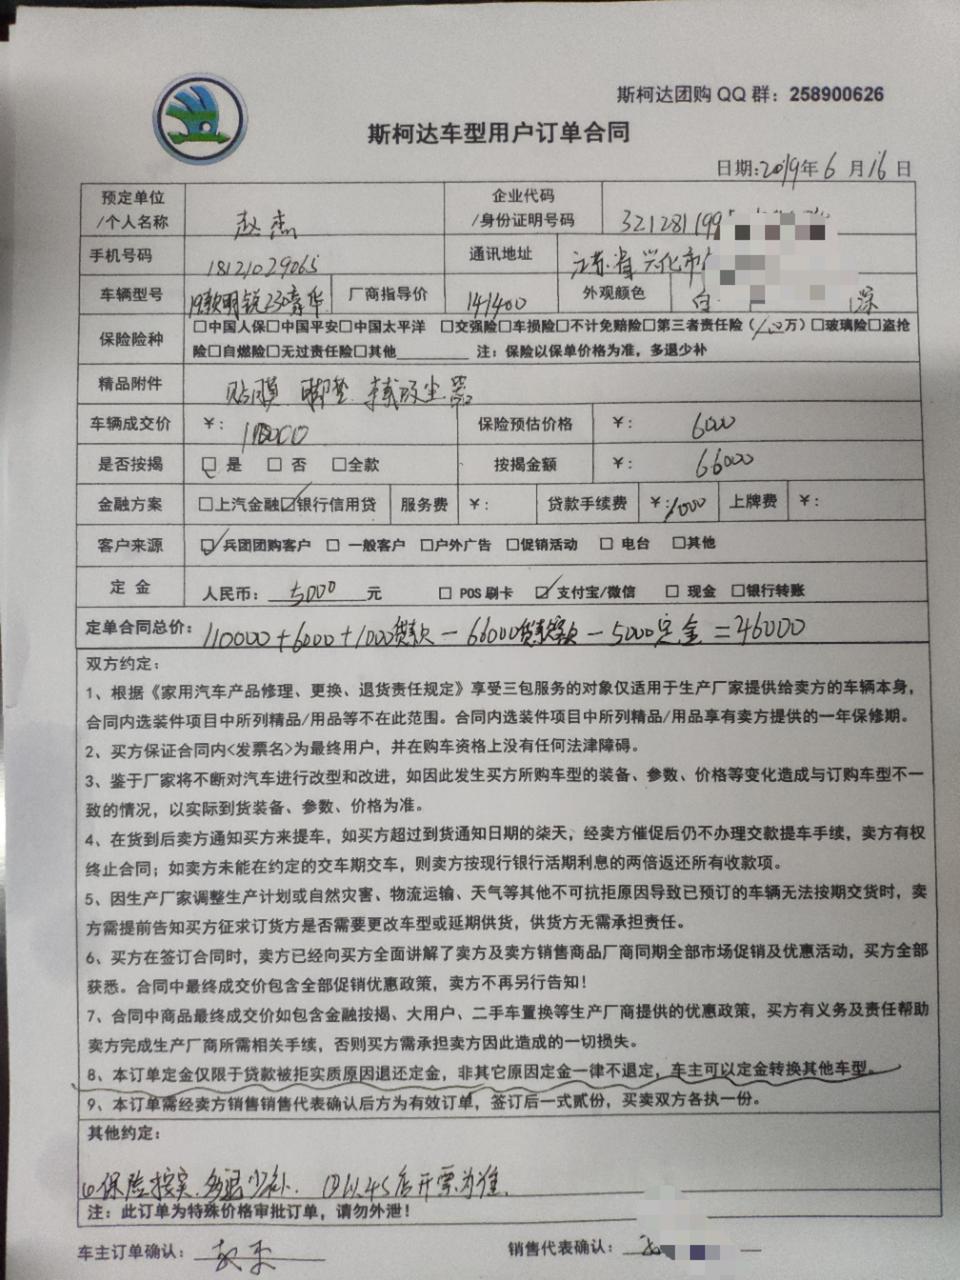 斯柯达团购QQ群：258900626
斯柯达车型用户订单合同
日期:2019年6月16日
预定单位/个人名称 赵杰 企业代码/身份证明号码 321281199
手机号码 18121029065 通讯地址 江苏省兴化市
车辆型号 19款明锐230豪华 厂商指导价 141400 外观颜色 白 深
保险险种 □中国人保□中国平安□中国太平洋 □交强险□车损险□不计免赔险□第三者责任险（100万）□玻璃险□盗抢
险□自燃险□无过责任险□其他 注：保险以保单价格为准，多退少补
精品附件 贴膜 脚垫 吸尘器
车辆成交价 ¥：110000 保险预估价格 ¥：6000
是否按揭 □是 □否 □全款 按揭金额 ¥：66000
金融方案 □上汽金融☑银行信用贷 服务费 ¥： 贷款手续费 ¥：1000 上牌费 ¥：
客户来源 ☑兵团团购客户 □一般客户 □户外广告 □促销活动 □电台 □其他
定金 人民币：5000元 □POS刷卡 ☑支付宝/微信 □现金 □银行转账
定单合同总价：110000+6000+1000贷款-66000贷款-5000定金=46000
双方约定：
1、根据《家用汽车产品修理、更换、退货责任规定》享受三包服务的对象仅适用于生产厂家提供给卖方的车辆本身，
合同内选装件项目中所列精品/用品等不在此范围。合同内选装件项目中所列精品/用品享有卖方提供的一年保修期。
2、买方保证合同内<发票名>为最终用户，并在购车资格上没有任何法津障碍。
3、鉴于厂家将不断对汽车进行改型和改进，如因此发生买方所购车型的装备、参数、价格等变化造成与订购车型不一
致的情况，以实际到货装备、参数、价格为准。
4、在货到后卖方通知买方来提车，如买方超过到货通知日期的柒天，经卖方催促后仍不办理交款提车手续，卖方有权
终止合同；如卖方未能在约定的交车期交车，则卖方按现行银行活期利息的两倍返还所有收款项。
5、因生产厂家调整生产计划或自然灾害、物流运输、天气等其他不可抗拒原因导致已预订的车辆无法按期交货时，卖
方需提前告知买方征求订货方是否需要更改车型或延期供货，供货方无需承担责任。
6、买方在签订合同时，卖方已经向买方全面讲解了卖方及卖方销售商品厂商同期全部市场促销及优惠活动，买方全部
获悉。合同中最终成交价包含全部促销优惠政策，卖方不再另行告知！
7、合同中商品最终成交价如包含金融按揭、大用户、二手车置换等生产厂商提供的优惠政策，买方有义务及责任帮助
卖方完成生产厂商所需相关手续，否则买方需承担卖方因此造成的一切损失。
8、本订单定金仅限于贷款被拒实质原因退还定金，非其它原因定金一律不退定，车主可以定金转换其他车型。
9、本订单需经卖方销售销售代表确认后方为有效订单，签订后一式贰份，买卖双方各执一份。
其他约定：
保险按实 多退少补 4S店开票为准
注：此订单为特殊价格审批订单，请勿外泄！
车主订单确认：赵杰 销售代表确认：